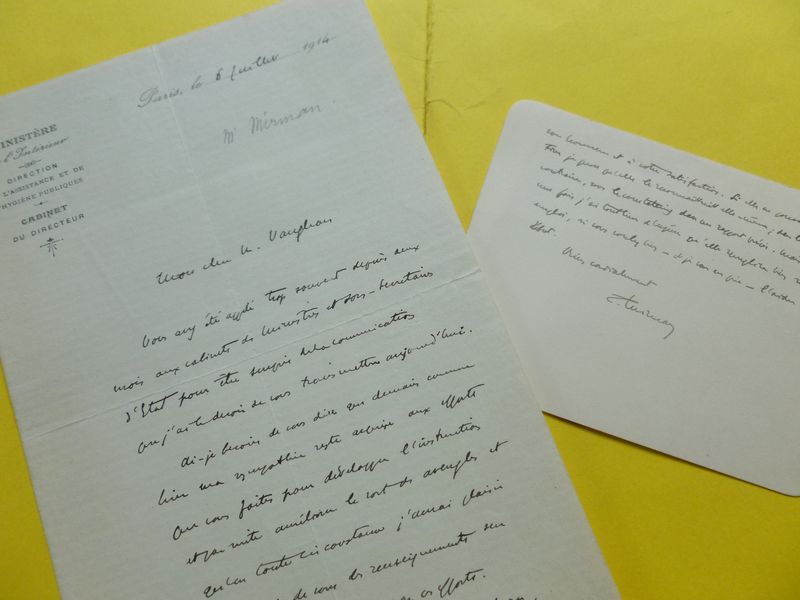 MINISTÈRE
de l'Intérieur
DIRECTION
L'ASSISTANCE ET DE
HYGIÈNE PUBLIQUES
CABINET
DU DIRECTEUR
Paris, le 6 juillet 1914
Mr Mirman.
Mon cher M. Vaughan
Vous avez été appelé trop souvent depuis deux
mois aux cabinets de Ministres et sous-secrétaires
d'Etat pour être surpris de la communication
que j'ai le devoir de vous transmettre aujourd'hui.
Ai-je besoin de vous dire que demain comme
hier ma sympathie reste acquise aux efforts
que vous faites pour développer l'instruction
et par suite améliorer le sort des aveugles et
qu'en toute circonstance j'aurai plaisir
de vous des renseignements sur
ces efforts.
et à votre satisfaction. Si elle
je pense qu'elle le reconnaîtrait elle-même,
une fois, j'ai qu'elle
si vous voulez
Bien cordialement
L. Mirman